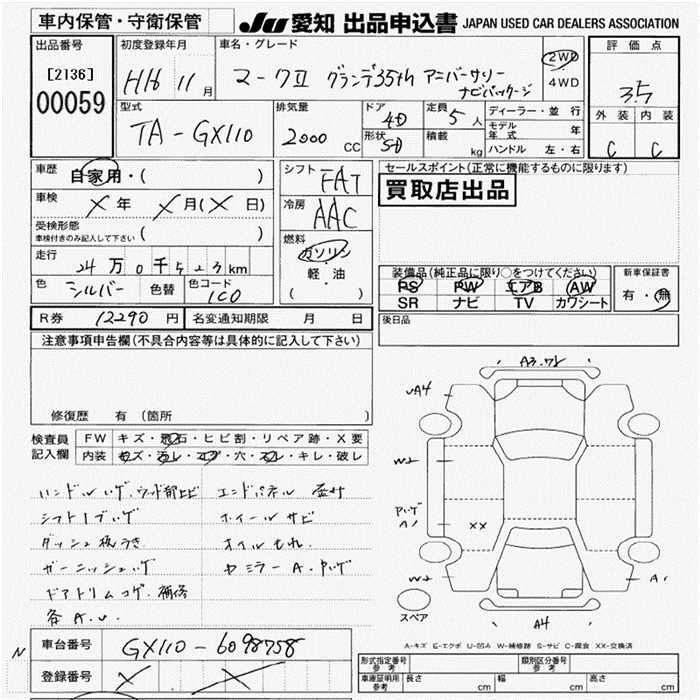 車内保管・守衛保管
JU 愛知 出品申込書 JAPAN USED CAR DEALERS ASSOCIATION
出品番号
[2136]
00059
初度登録年月
H16 11月
車名・グレード
マークII グランデ35th アニバーサリー
ナビパッケージ
2WD
4WD
評価点
3.5
外装 内装
C C
型式
TA-GX110
排気量
2000 CC
ドア
4D
形状
SD
定員
5人
積載
kg
ディーラー・並行
モデル年式 年
ハンドル 左・右
車歴
自家用・( )
車検
X年 X月(X日)
受検形態
車検付きのみ記入して下さい ( )
走行
24万0千523km
色 シルバー 色替 色コード 1C0
シフト FAT
冷房 AAC
燃料
ガソリン
軽・油
( )
セールスポイント(正常に機能するものに限ります)
買取店出品
装備品(純正品に限り○をつけてください)
PS PW エアB AW
SR ナビ TV カワシート
新車保証書
有・無
後日品
R券 12290円 名変通知期限 月 日
注意事項申告欄(不具合内容等は具体的に記入して下さい)
修復歴 有 (箇所 )
検査員
記入欄
FW キズ・飛石・ヒビ割・リペア跡・X要
内装 キズ・汚レ・コゲ・穴・スレ・キレ・破レ
ハンドルハゲ.ウッド部ヒビ
シフトノブハゲ
ダッシュ板うき
ガーニッシュハゲ
ドアトリムコゲ.補修
各A.U.
エンドパネル
ホイールサビ
オイルもれ.
セミラーA.Pハゲ
A3.フレ
A4
W2
Pハゲ
A1
XX
W2
A1
A4
スペア
A-キズ E-エクボ U-凹み W-補修跡 S-サビ C-腐食 XX-交換済
N
車台番号 GX110-6098758
登録番号 X X
形式指定番号
参考
類別区分番号
参考
車庫証明用
参考
長さ cm 幅 cm 高さ cm